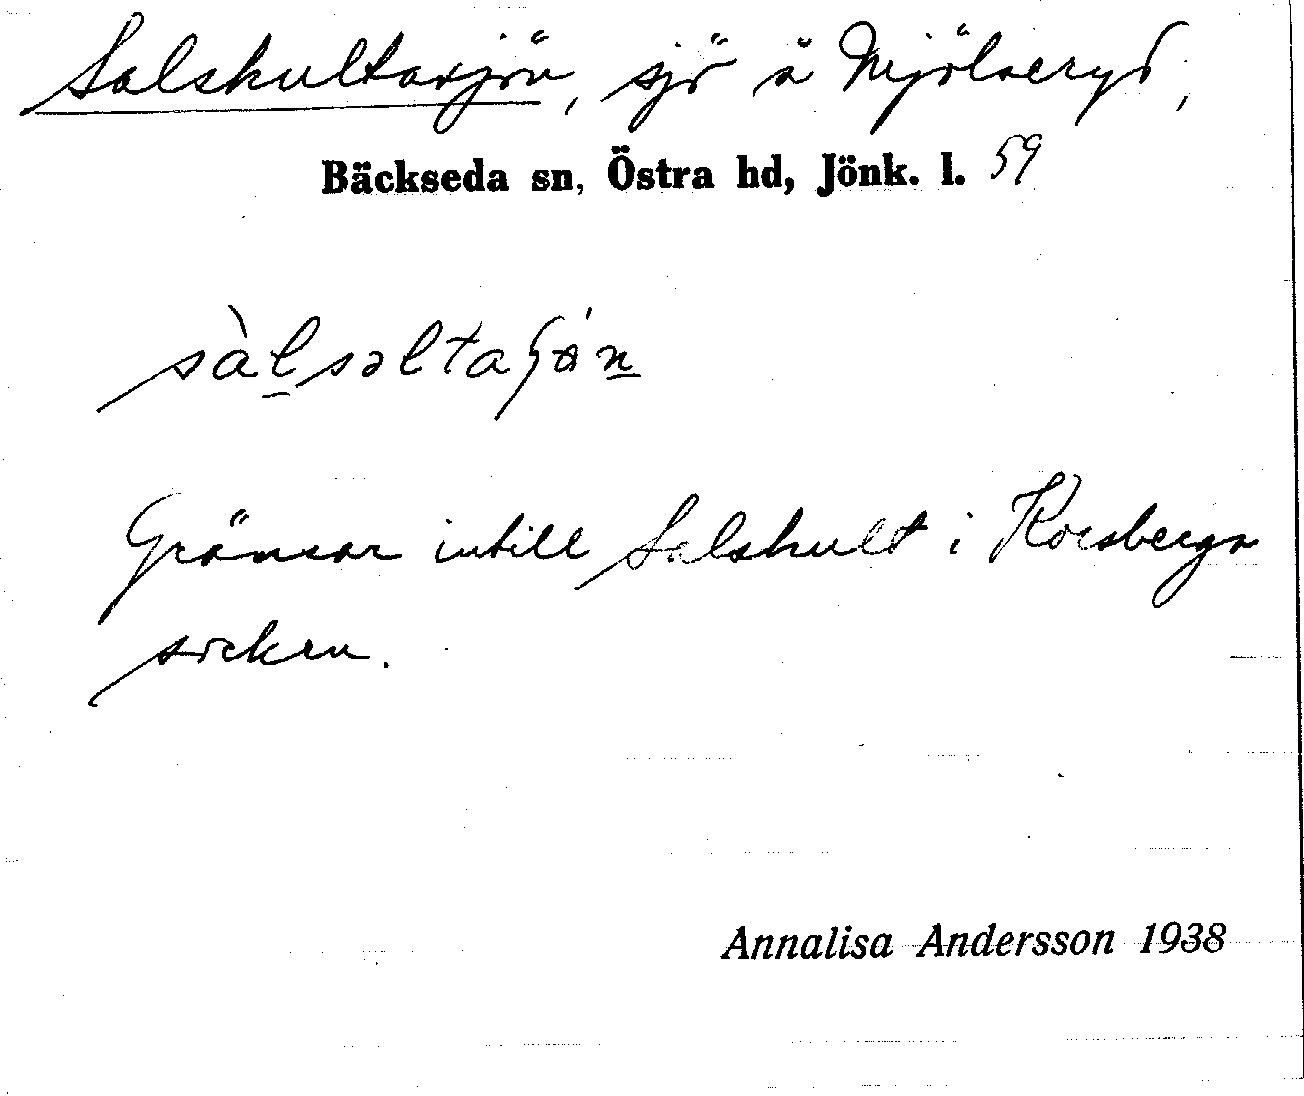 Salshultasjön, sjö å Mjölaeryd,
Bäckseda sn, Östra hd, Jönk. l. 59
sàlsəltaʃön
Gränsar intill Salshult i Korsberga
socken.
Annalisa Andersson 1938